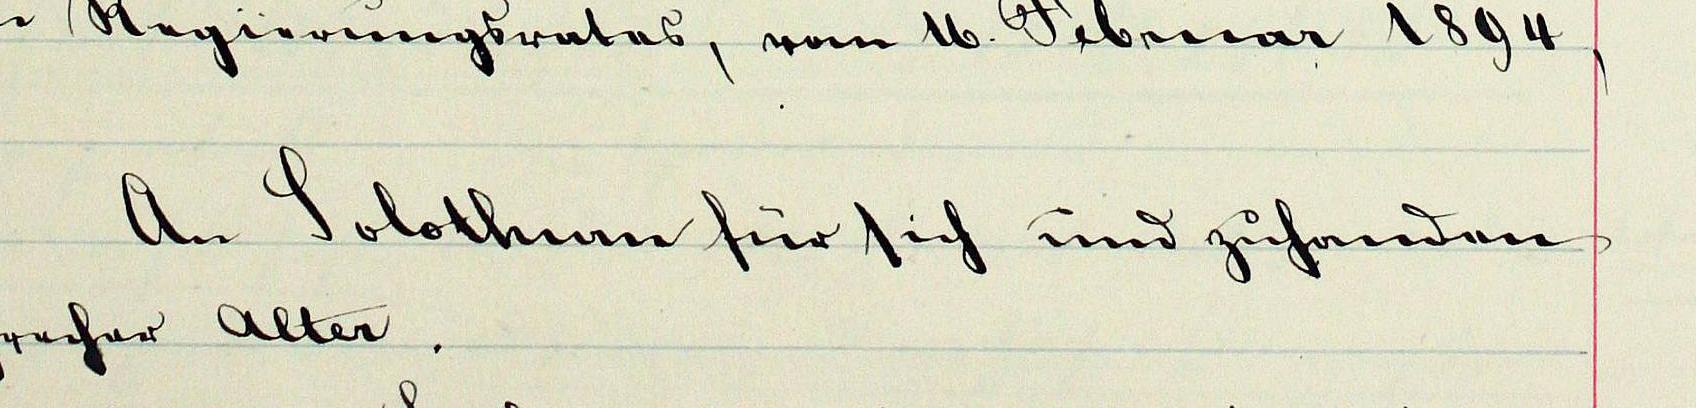 Regierungsrates, vom 16. Februar 1894,
An Solothurn für sich und zuhanden
sprecher Alter.